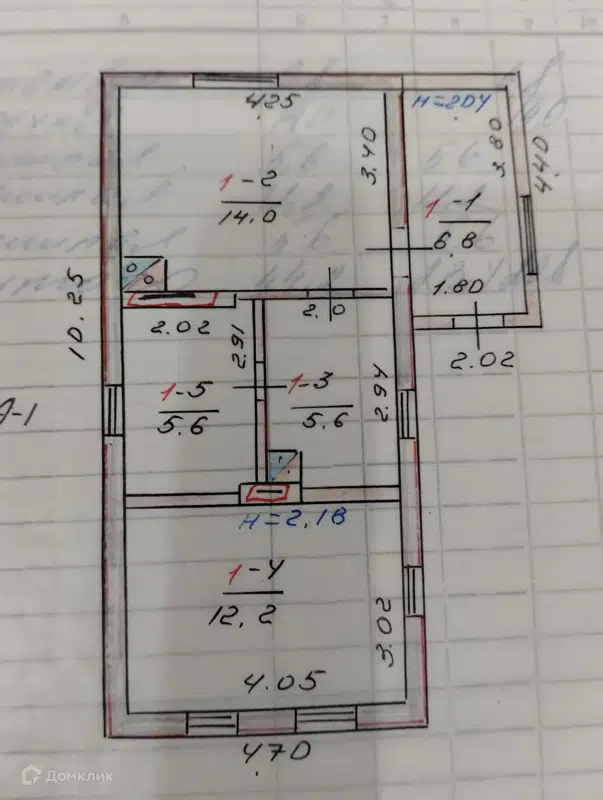 425
H=2.04
3.40
3.80
4.40
1-2
14.0
1-1
6.8
1.80
10.25
2.02
2.91
2.0
2.02
1-5
5.6
1-3
5.6
2.94
H=2.18
1-4
12.2
3.02
4.05
470
Домклик